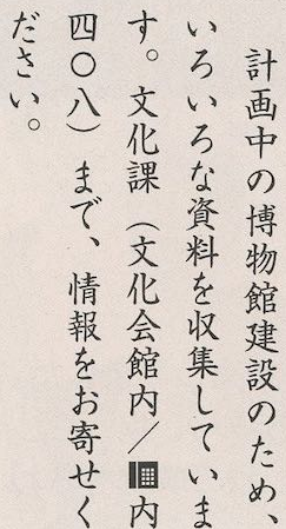 計画中の博物館建設のため、
いろいろな資料を収集していま
す。文化課（文化会館内／☎内
四〇八）まで、情報をお寄せく
ださい。